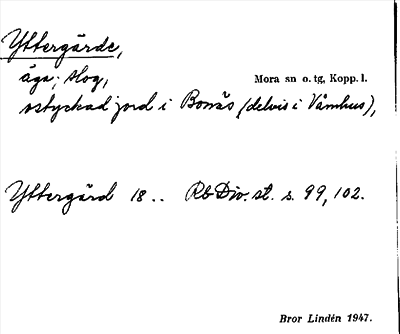 Yttergärde,
äga; skog,
Mora sn o. tg, Kopp. l.
ostyckad jord i Bonäs (delvis i Våmhus),
Yttergärd 18.. Rb Div. st. s. 99, 102.
Bror Lindén 1947.